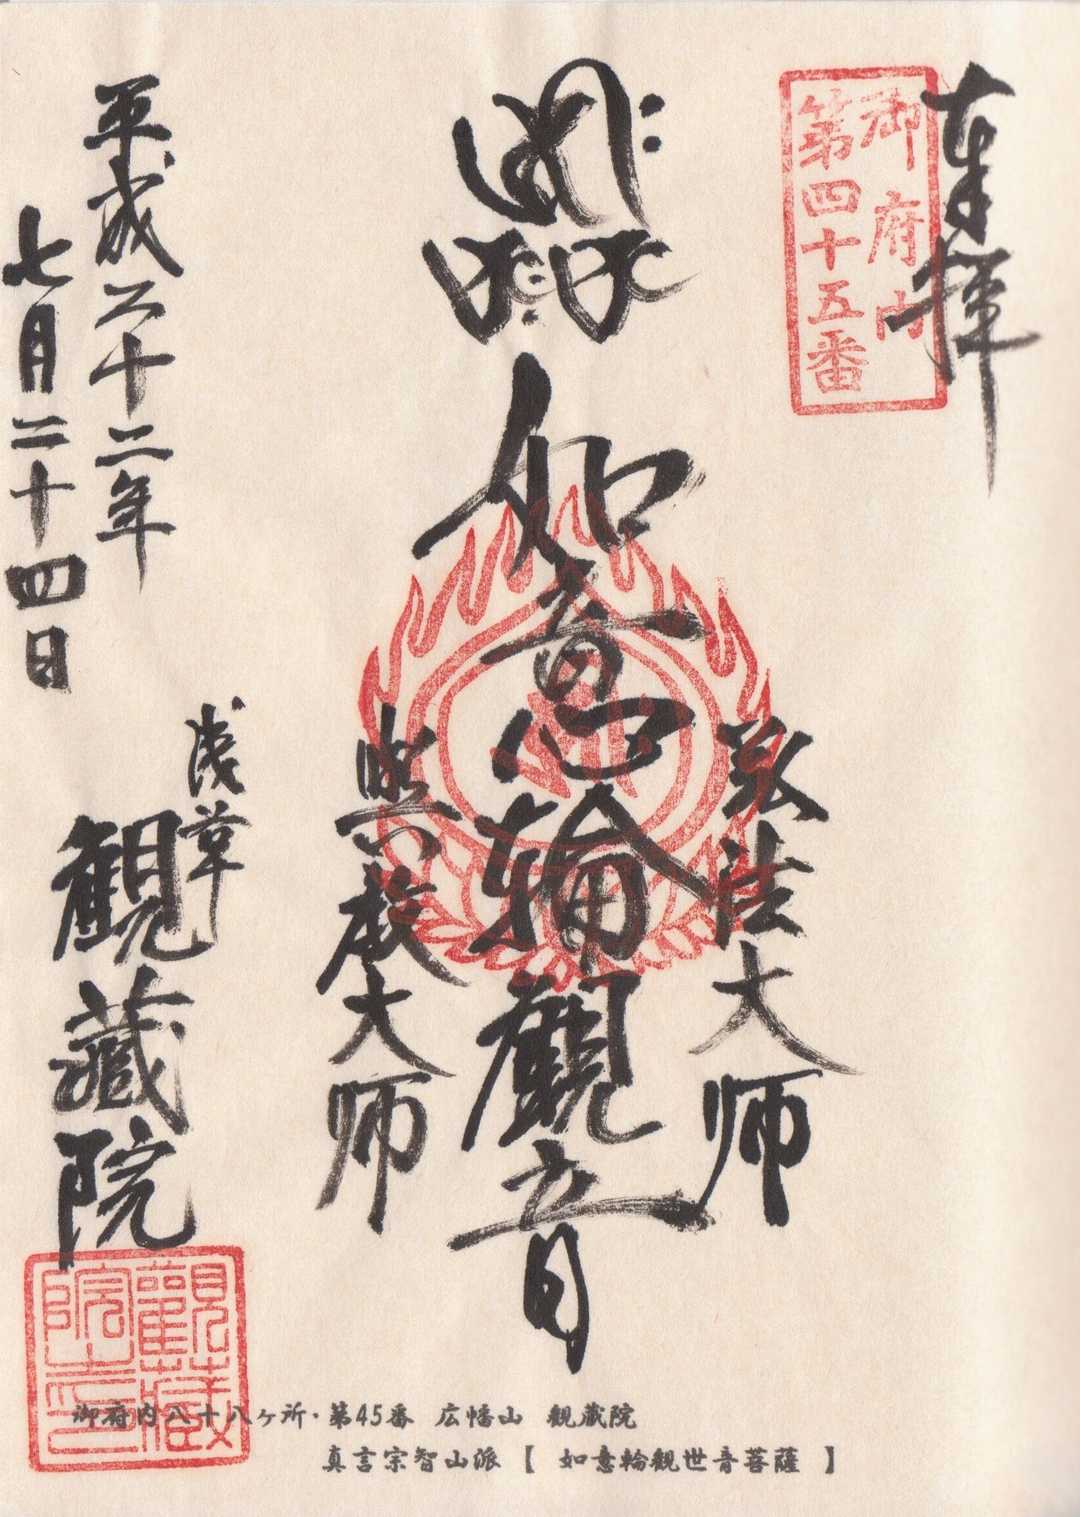 奉拝
御府内
第四十五番
弘法大师
如意輪觀音
興教大师
平成二十二年
七月二十四日
浅草
観蔵院
觀藏
院之印
御府内八十八ヶ所・第45番 広幡山 観蔵院
真言宗智山派【 如意輪観世音菩薩 】